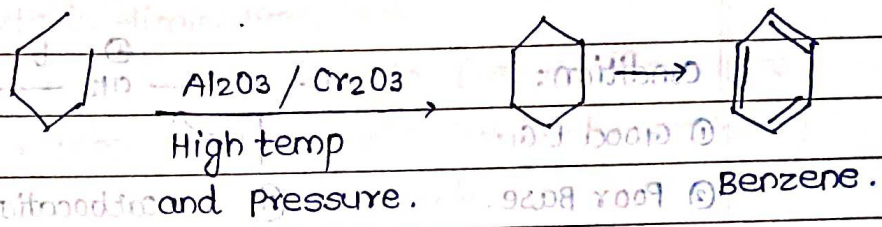 Al2O3 / Cr2O3
High temp
and Pressure.
Benzene.